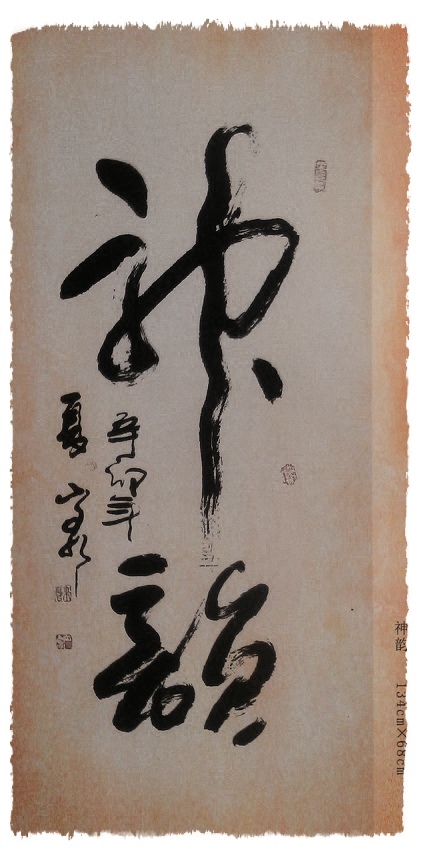 神韻
辛卯年
夏
神韵 134cm×68cm